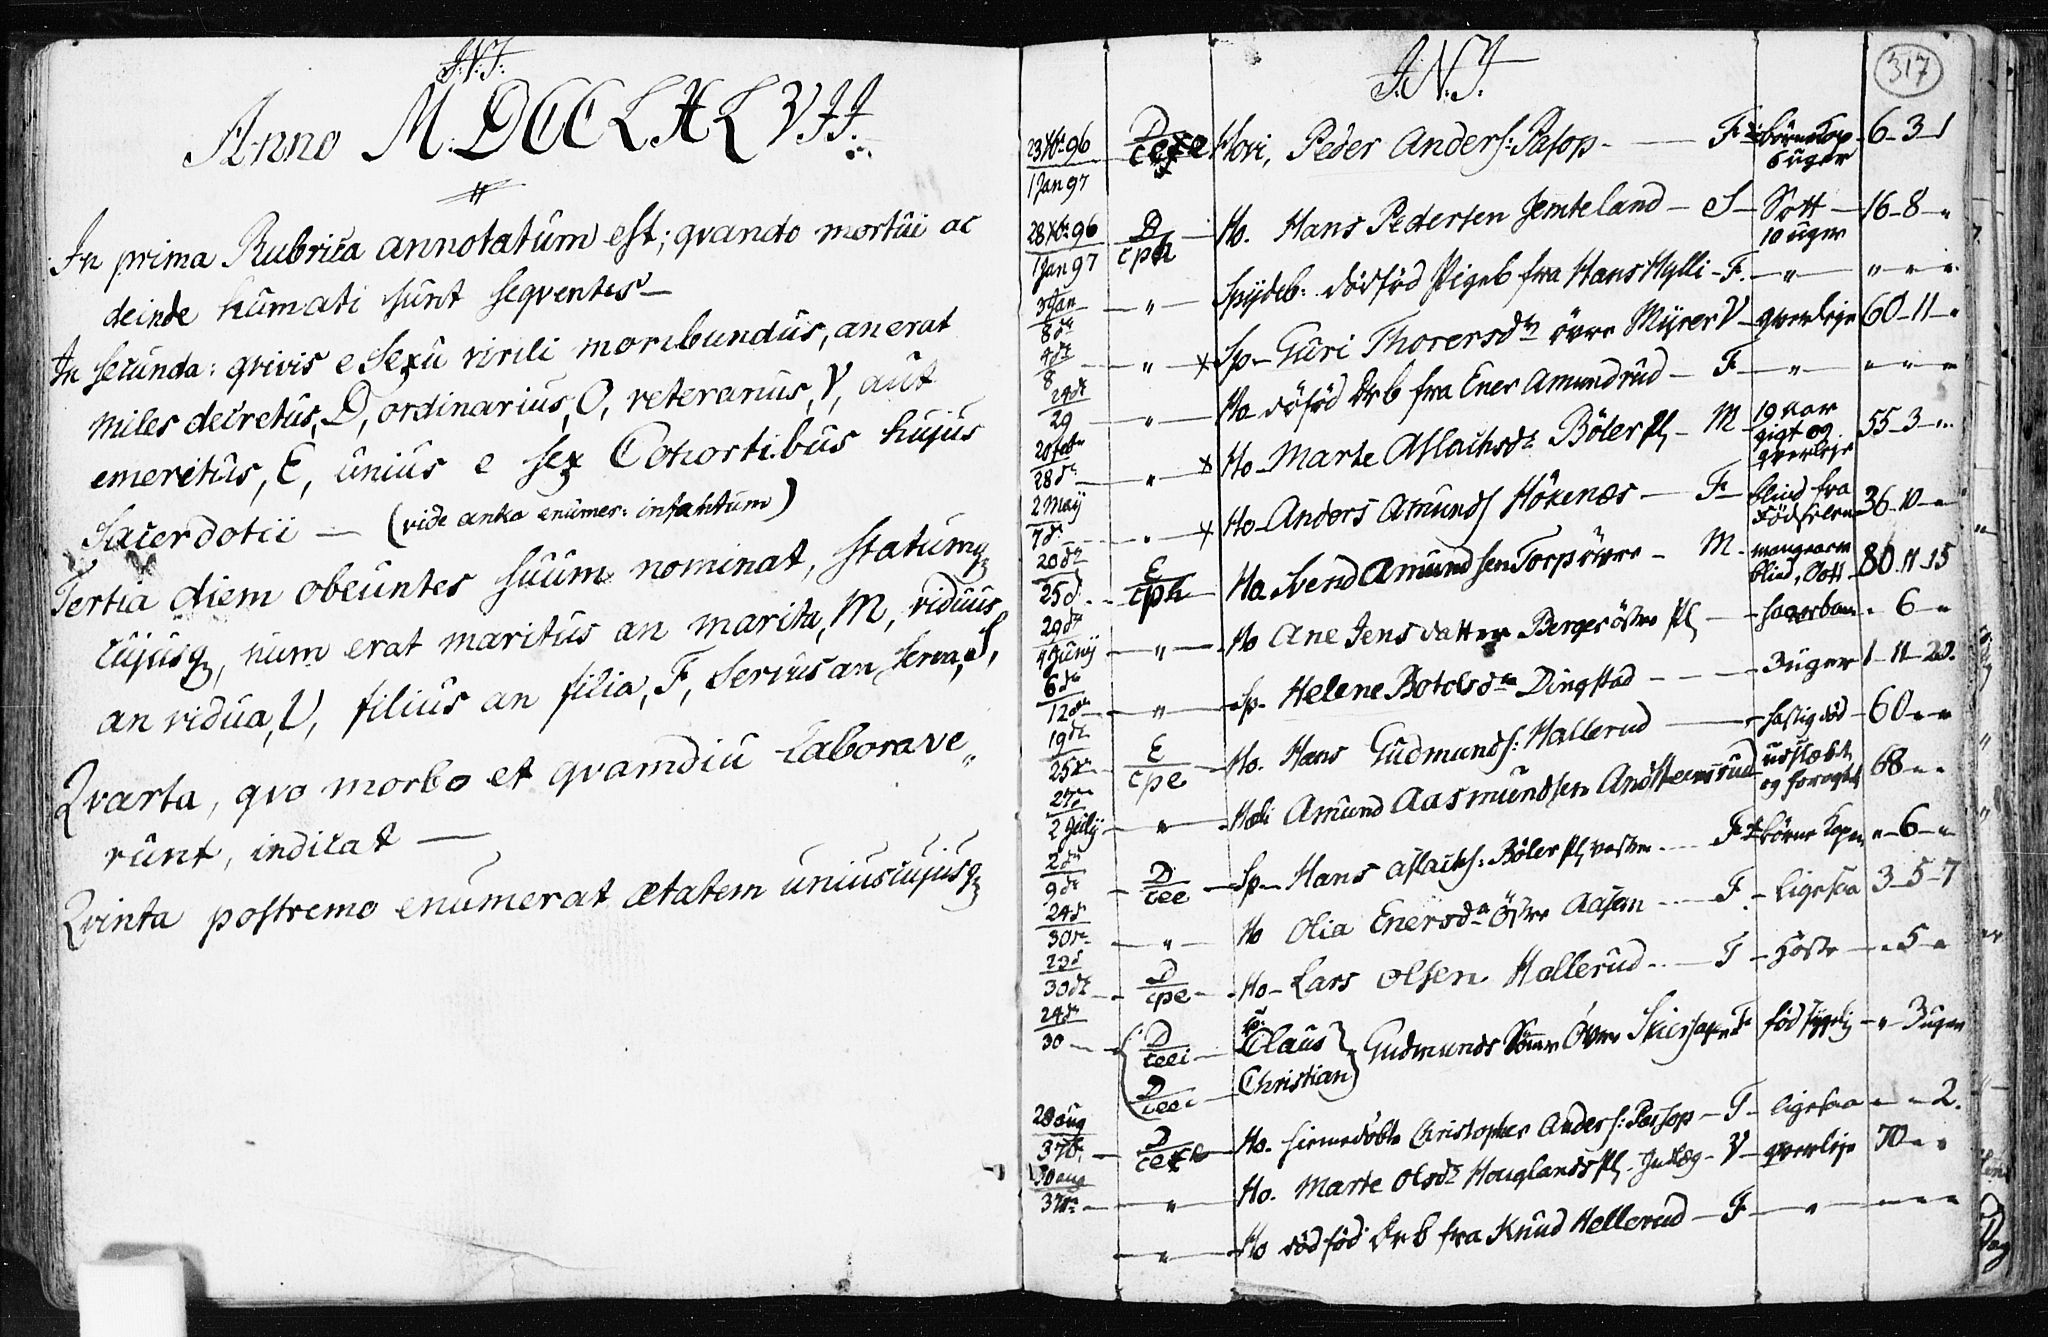 I: N: J:
Anno M. DCCLXLVII.
In prima Rubrica annotatum est; qvando mortui ac
deinde humati sunt seqventes
In secunda: qvivis e Sexu virili moribundus, an erat
miles decretus, D, ordinarius, O, veteranus, V, aut
emeritus, E, unius e sex Cohortibus hujus
Sacerdotii — (vide antea enumer: infantum)
Tertia diem obeuntes suum nominat, statumq
cujusq, num erat maritus an marita, M, viduus
an vidua, V, filius an filia, F, servus an serva, S,
Qvarta, qvo morbo et qvamdiu laborave„
runt, indicat —
Qvinta postremo enumerat ætatem uniuscujusq
I. N. J.
317
23 Xbr 96 / 1 Jan 97 D Hovi, Peder Anders: Pasop — F börnekop 6 uger 6 - 3 - 1
28 Xbr 96 / 1 Jan 97 D / cph Ho. Hans Pedersen Jemteland — S — Sott 10 uger 16 - 8 - „
3 Jan / 8 d — „ — Spydeb: dödföd Pigeb fra Hans Hylli — F. — „ — „ „ „
4 dt / 8 — „ — x Sp — Guri Thorersdr övre Myrer V — qverleje 60 - 11 - „
24 dt / 29 — „ — Ho döföd Drb fra Ener Amundrud — F — „ — „ „ „
20 febr / 28 d — „ x Ho — Marte Aslachsdr Böler pl — M — 19 aar gigt og qverleje 55 - 3 - „
2 May / 7 d — „ x Ho — Anders Amunds Hökenæs — F — blind fra Födselen 36 - 10 - „
20 dt / 25 d — E / cph — Ho Svend Amundsen Torp övre — M — mange aar blind, Sott 80 - 11 - 15
29 dt / 4 Juny — „ — Ho Ane Jensdatter Berger östre pl — „ 6 „
6 dt / 12 dt — „ — Sp — Helene Botolsdr Dingstad — — 3 uger 1 - 11 - 20.
19 dt / 25 dt — E / cpe — Ho. Hans Gudmunds: Hallerud — hastig död — 60 „ „
27 / 2 July — „ — Amund Aasmundsen — udslæbt 68 „ „
2 dt / 9 dt — D / cee — Sp — Hans Aslachs: Böler pl vestre — F börne Kopr „ - 6 - „
24 d / 30 — „ — Ho Olia Enersdr Östre Aasen — F — ligesaa 3 - 5 - 7
23 d / 30 dt — D / cpe — Ho — Lars Olsen Hallerud — F — Hoste — „ 5 „
24 d / 30 — D / ceei — Sp: Claus } Gudmunds Sönner Övre — F. föd sygelig — „ 3 uger
D / ceei — Christian
28 aug / 3 7br — D — Ho. hiemedöbte Christopher Anders: Passop — F — ligesaa „ „ 2.
30 aug / 3 7br — „ — Ho. Marte Olsdr Houglands pl — Indlæg — V — qverleje 70 „ „
— „ — Ho dödföd Drb fra Knud Hellerud — F — „ — „ „ „